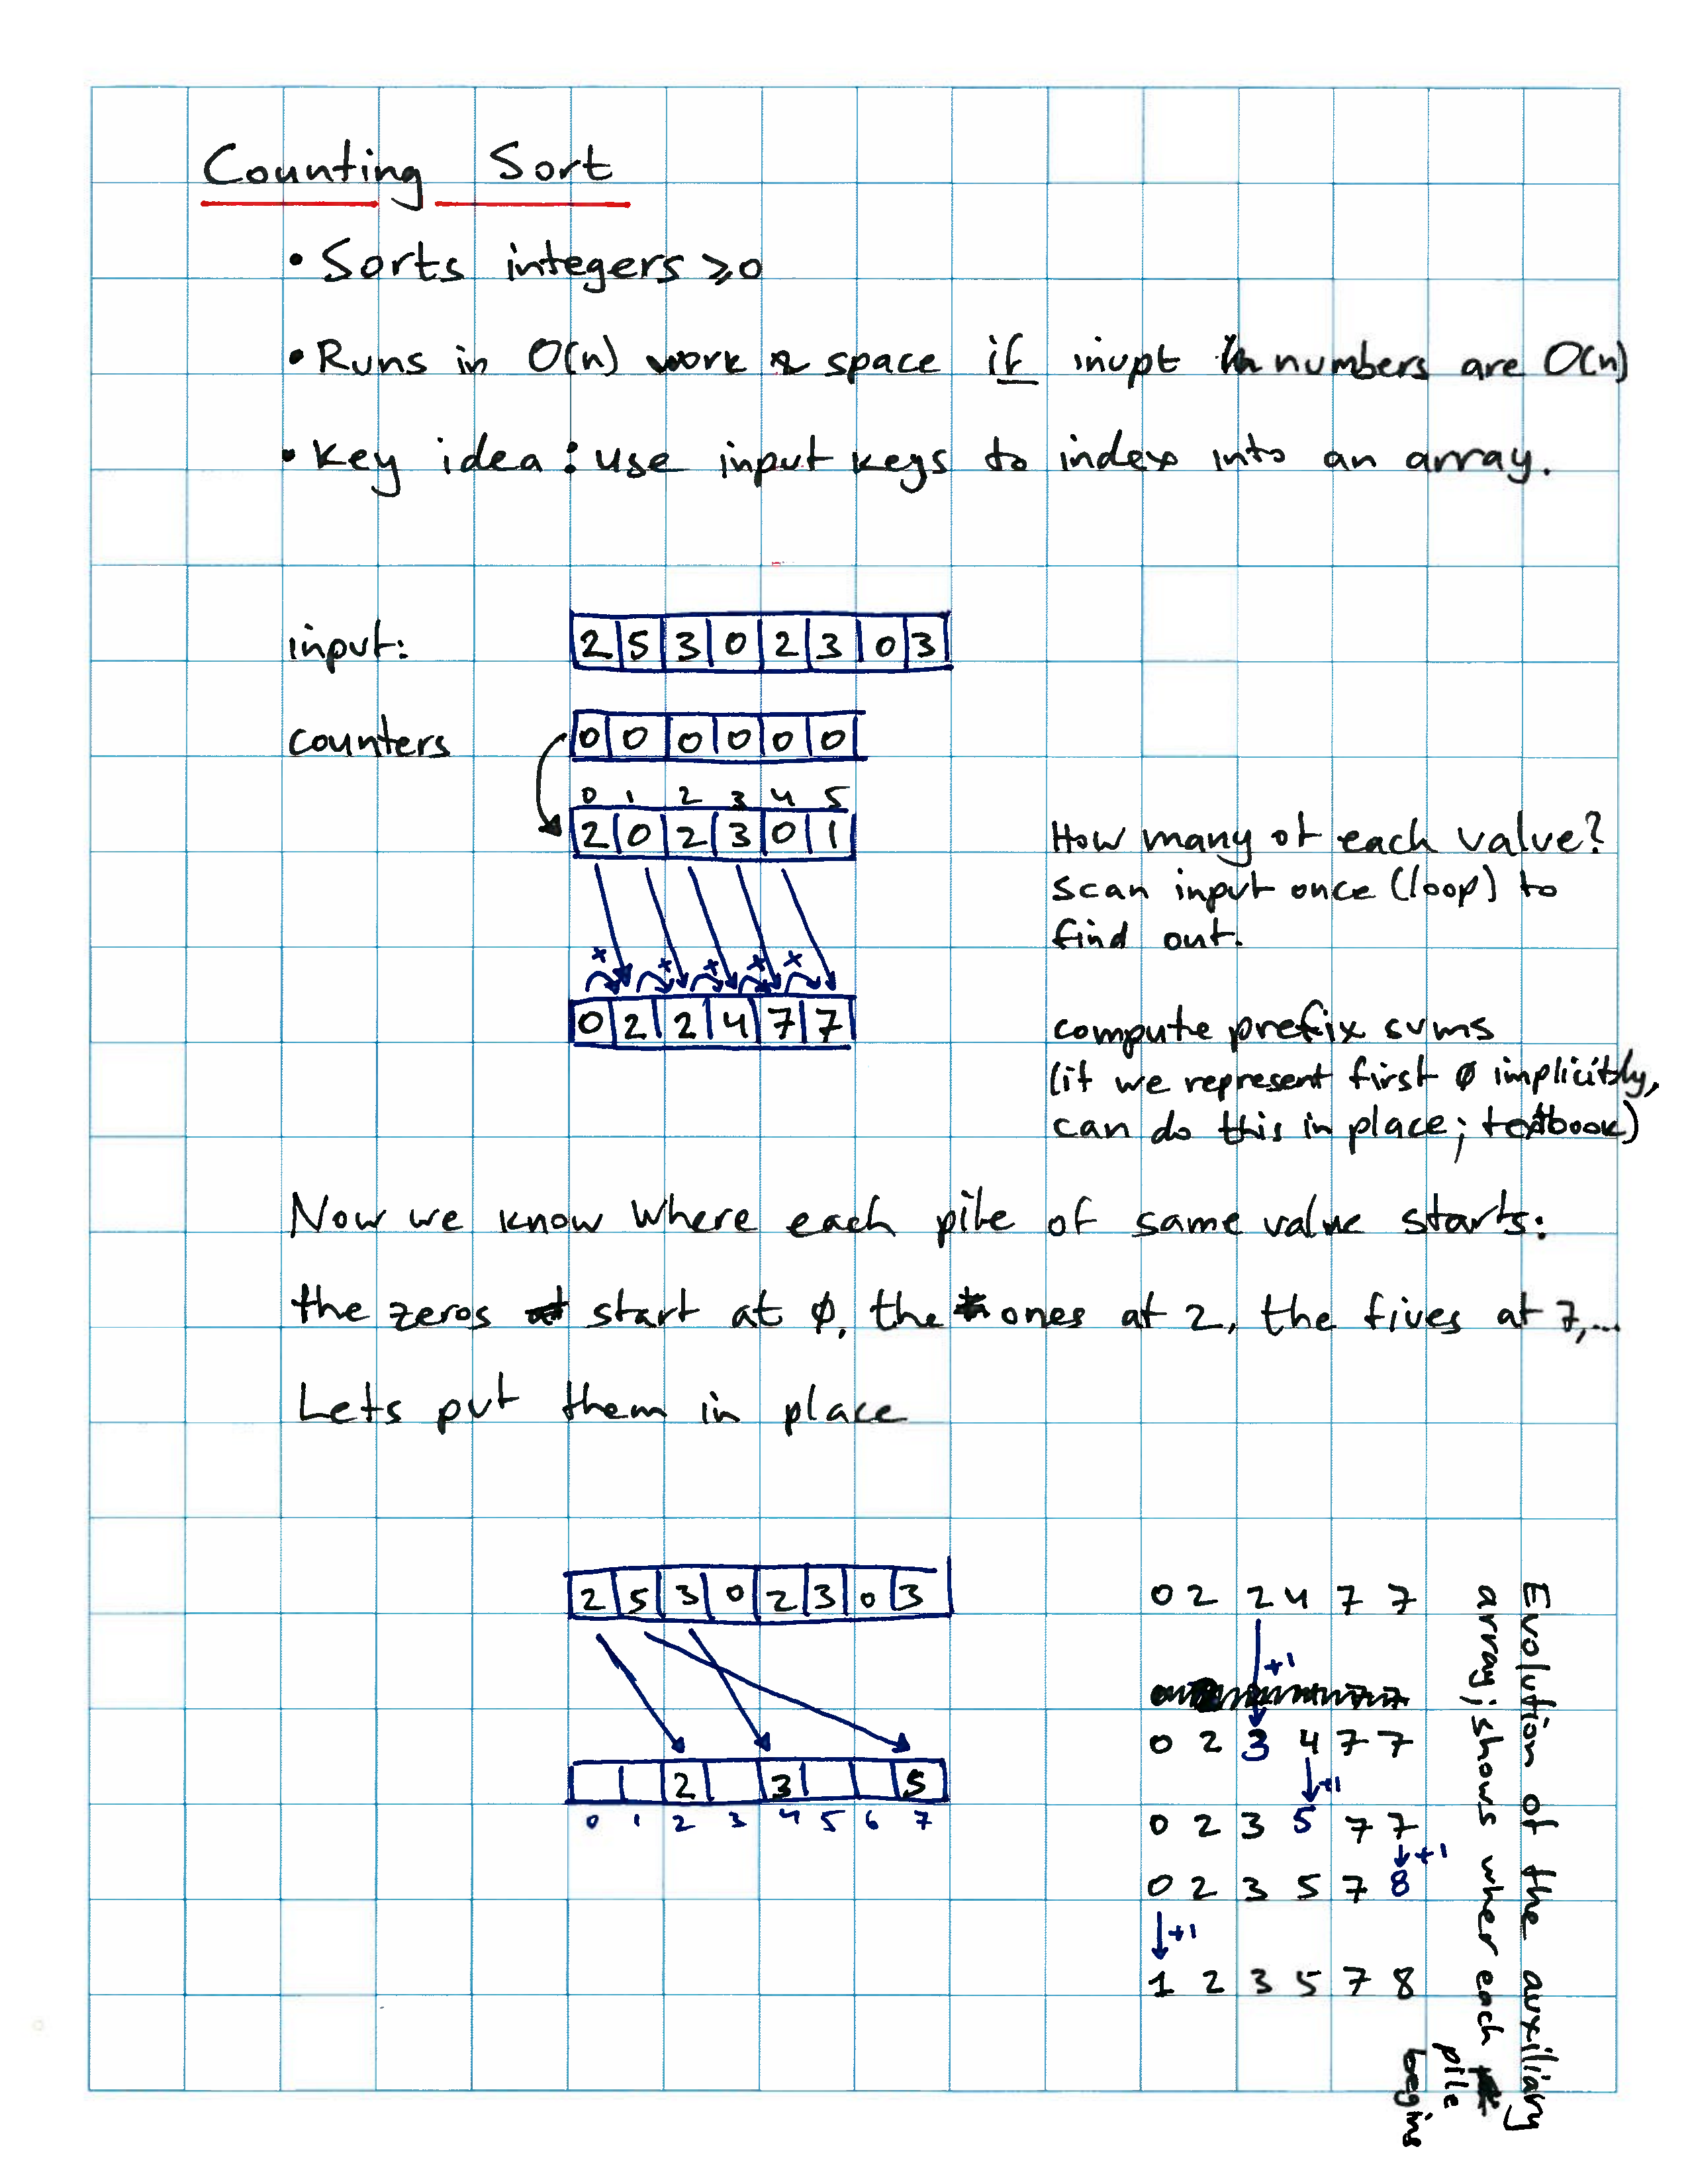 Counting Sort
• Sorts integers ≥0
• Runs in O(n) work & space if inupt numbers are O(n)
• Key idea: use input keys to index into an array.
input: 2 5 3 0 2 3 0 3
counters 0 0 0 0 0 0
0 1 2 3 4 5
2 0 2 3 0 1
How many of each value?
scan input once (loop) to
find out.
+ + + + +
0 2 2 4 7 7
compute prefix sums
(if we represent first Ø implicitly,
can do this in place; textbook)
Now we know where each pile of same value starts:
the zeros start at Ø, the ones at 2, the fives at 7,...
Lets put them in place
2 5 3 0 2 3 0 3
2 3 5
0 1 2 3 4 5 6 7
0 2 2 4 7 7
+1
0 2 3 4 7 7
+1
0 2 3 5 7 7
+1
0 2 3 5 7 8
+1
1 2 3 5 7 8
Evolution of the auxiliary
array; shows wher each
pile
begins